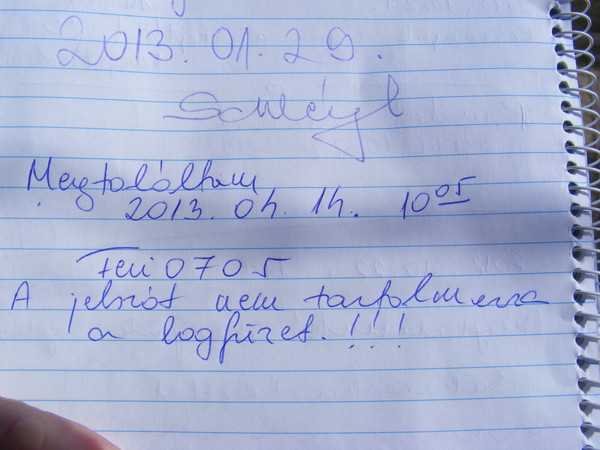 2013. 01. 29.
Megtaláltam
2013. 04. 14. 10 05
Feri0705
A jelszót nem tartalmazza
a logfüzet.!!!